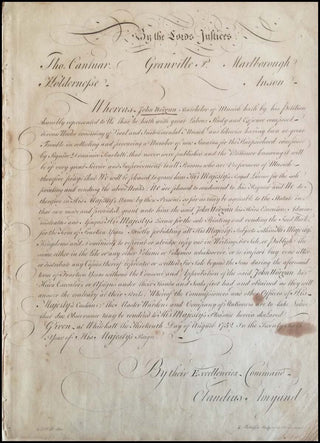 By the Lords Justices
Tho. Cantuar. Granville P. Marlborough
Holdernesse Anson
Whereas John Worgan Batchelor of Musick hath by his Petition
humbly represented to Us that he hath with great Labour Study and Expence composed
Works consisting of Vocal and Instrumental Musick and likewise having been at great
Trouble in collecting and procuring a Number of new Sonatas for the Harpsichord composed
by Signor Domenico Scarlatti that never were published
be of very great Service
We will be pleased to grant him His Majesty's Royal Licence for the sole
printing and vending the above Works We are pleased to condescend to his Request and We do
therefore in His Majesty's Name by these Presents so far as may be agreable to the Statute in
that case made and provided grant unto him the said John Worgan his Heirs Executors Adminis
trators and Assigns His Majesty's Licence for the sole Printing and vending the said Works
for the Term of Fourteen Years Strictly forbidding all His Majesty's Subjects within His Majesty's
Kingdoms and Dominions to reprint or abridge any one in Writing for Sale, or Publish the
same either in the like or any other Volume or Volumes whatsoever, or to import buy vend utter
or distribute any Copies thereof reprinted or written for Sale beyond the Seas during the aforesaid
Term of Fourteen Years without the Consent and Approbation of the said John Worgan his
Heirs Executors or Assigns under their Hands and Seals first had and obtained as they will
answer the contrary at their Perils Whereof the Commissioners and other Officers of His
Majesty's Customs the Master Wardens and Company of Stationers are to take Notice
that due Obedience may be rendred to His Majesty's Pleasure herein declared
Given at Whitehall the Thirteenth Day of August 1752 In the Twenty sixth
Year of His Majesty's Reign
By their Excellencies Command
Claudius Amyand